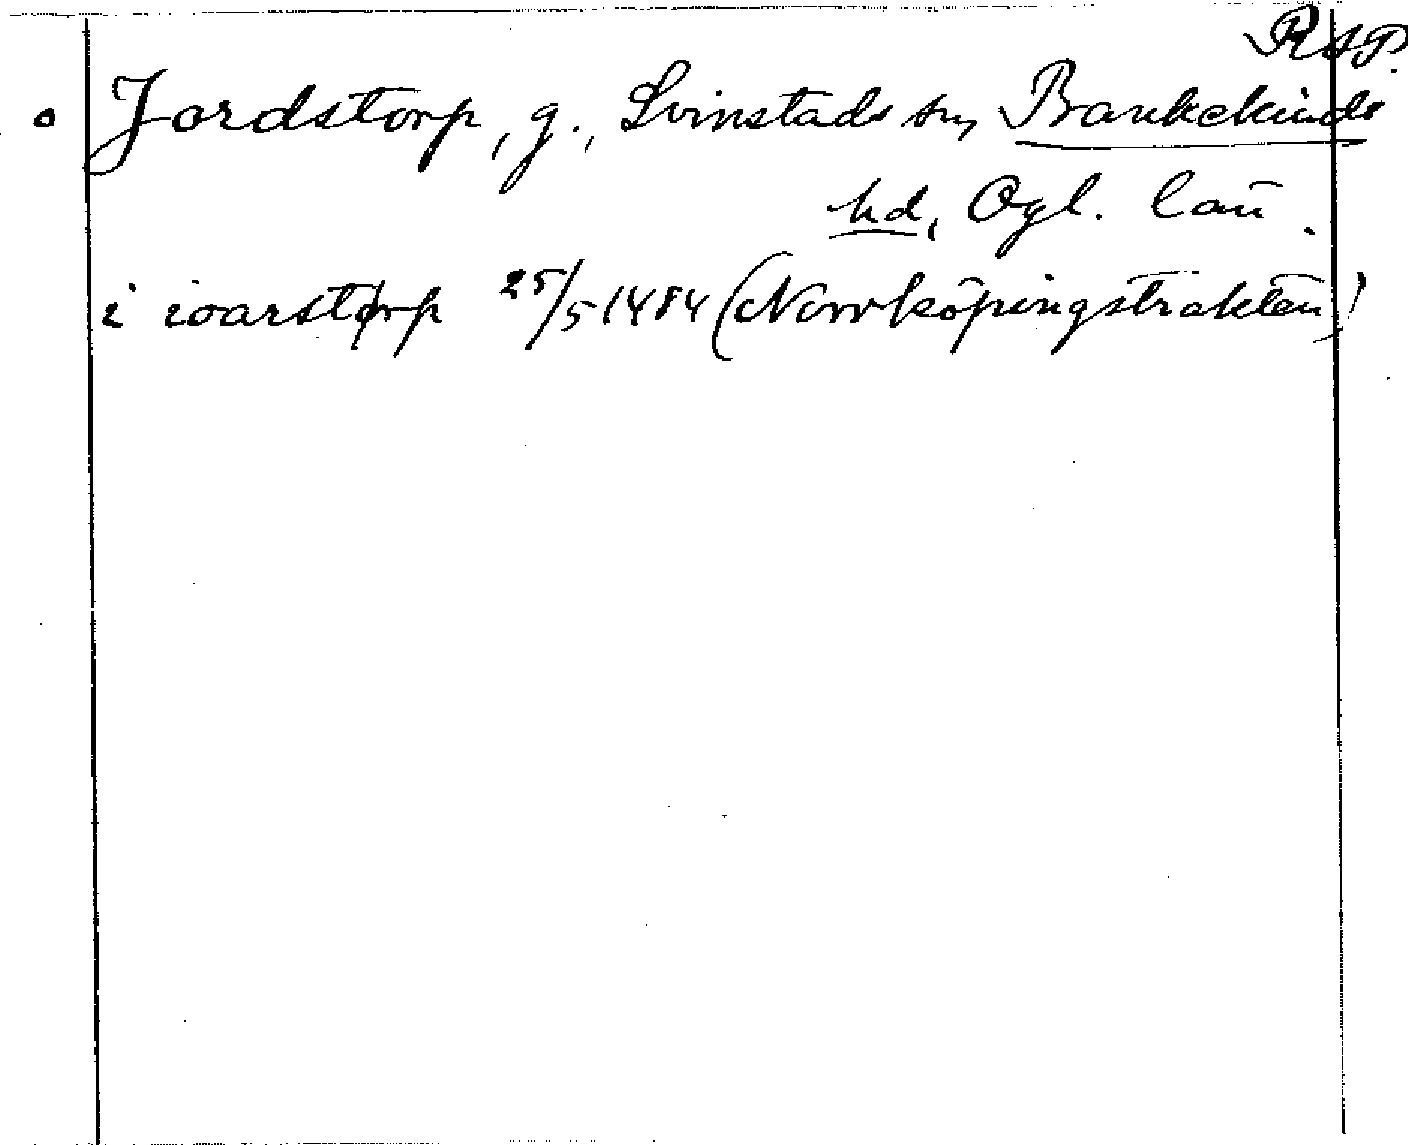 RAP.
Jordstorp, g., Svinstads sn, Bankekinds
hd, Ögl. län.
i ioarstørp 25/5 1484 (Norrköpingstrakten)